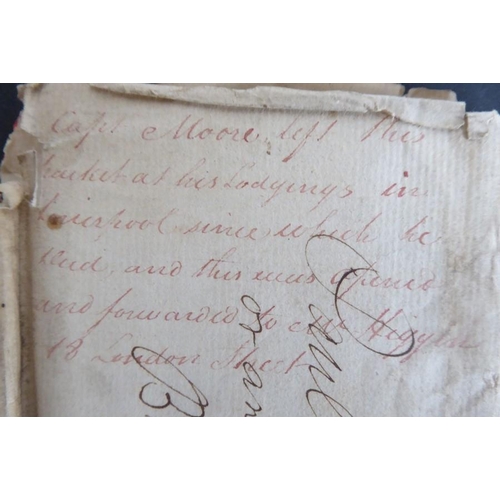 Capt Moore left this
packet at his Lodgings in
Liverpool since which he
died, and this was opened
and forwarded to Mr Higgin
18 London Street